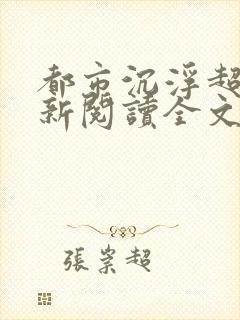 都市沉浮超
新閱讀全文
張崇超